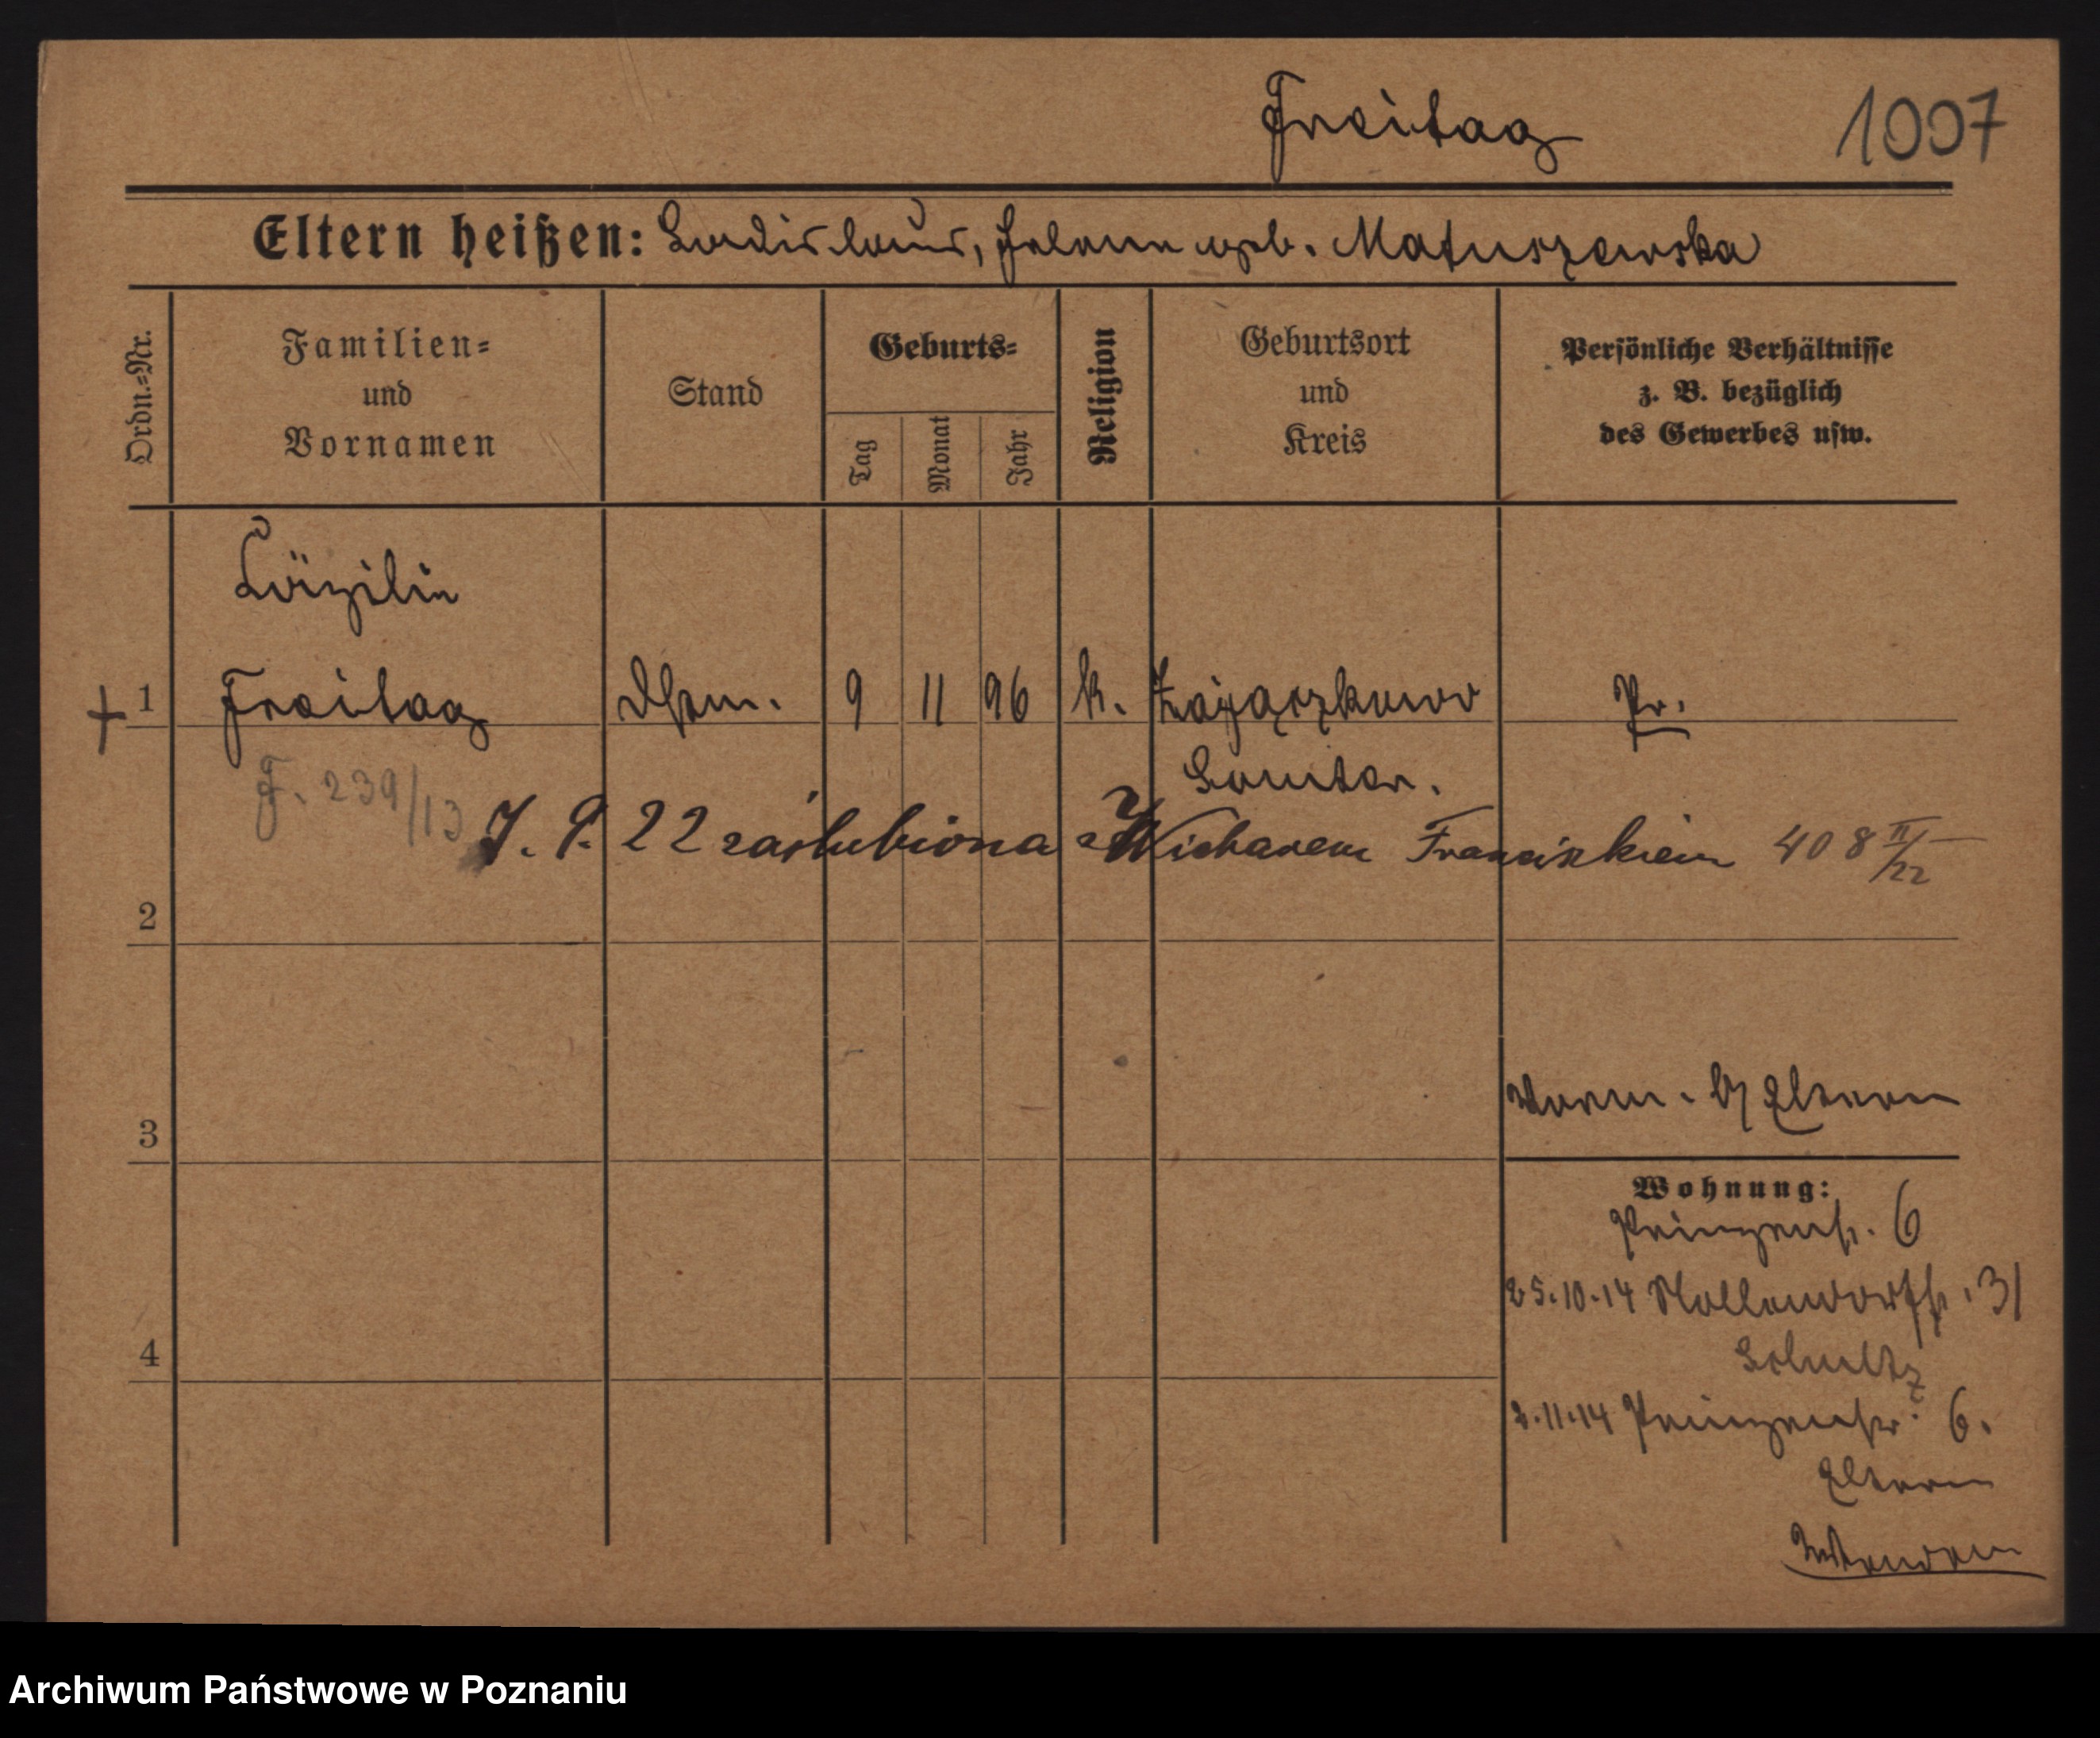 Freitag 1007
Eltern heißen: Ladislaus, Helene geb. Matuszewska
Ordn.-Nr.
Familien-
und
Vornamen
Stand
Geburts-
Tag
Monat
Jahr
Religion
Geburtsort
und
Kreis
Persönliche Verhältnisse
z. B. bezüglich
des Gewerbes usw.
Cäzilie
1 Freitag 9 11 96 k. Zajączkowo Pr.
Samter.
F. 239/13
7. 9. 22 zaślubiona z Franciszkiem 408 II/22
2
3
Eltern
Wohnung:
Prinzenstr. 6
25.10.14 31
Schultz
4
2.11.14 Prinzenstr. 6.
Eltern
Archiwum Państwowe w Poznaniu